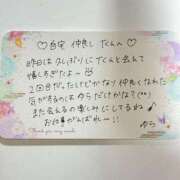 ♡自宅 仲良し Tくんへ♡
昨日は久しぶりにTくんと会えて
嬉しすぎたよ〜
2回目だったけどかなり仲良くなれた
気がするのはゆうだけかな？♡
また会えるの楽しみにしてるね♪
お仕事がんばれー!!
Thank you very much.
ゆう